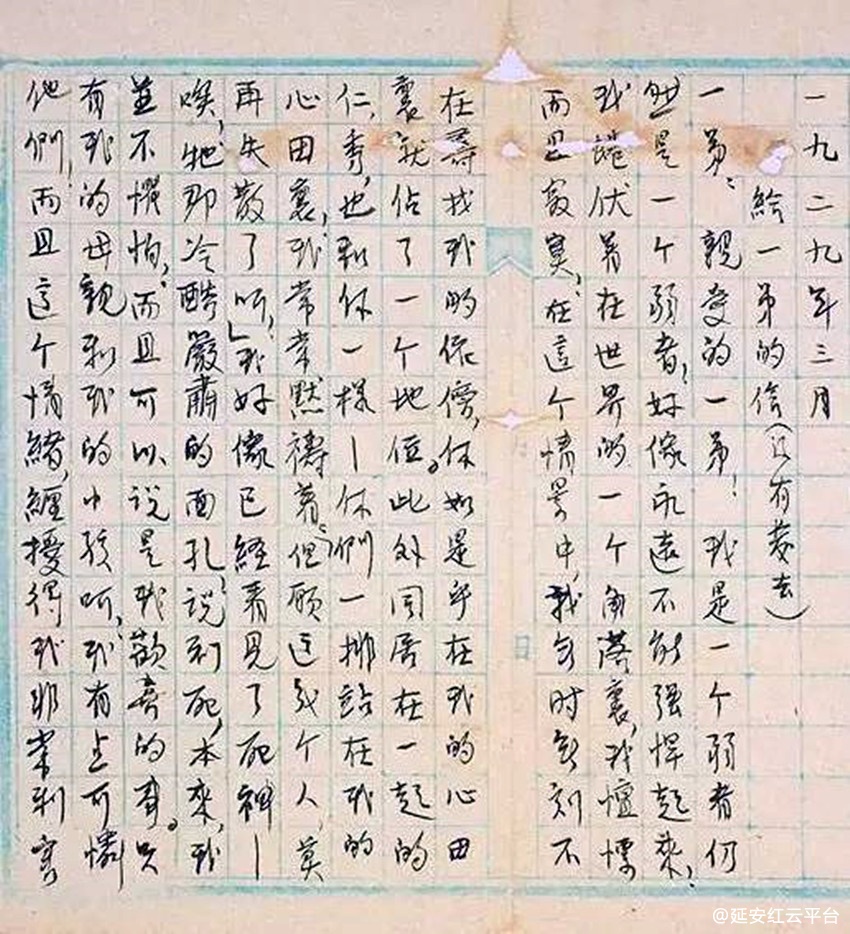 一九二九年三月
給一弟的信(没有發去)
一弟:親愛的一弟!我是一个弱者仍
然是一个弱者,好像永遠不能强悍起來,
我蜷伏着在世界的一个角落裏,我
而且寂寞,在這个情景中,我無时無刻不
在尋找我的依傍,你如是乎在我的心田
裏就佔了一个地位。此外同居在一起的
仁,秀,也和你一樣—你們一排站在我的
心田裏,我常常默禱着,但願這我个人,莫
再失散了呵,」我好像已經看見了死神—
唉,牠那冷酷嚴肅的面孔,说到死,本來,我
並不懼怕,而且可以说是我歡喜的事。只
有我的母親和我的小孩呵,我有点可憐
他們,而且這个情緒,纏擾得我非常利害
@延安红云平台